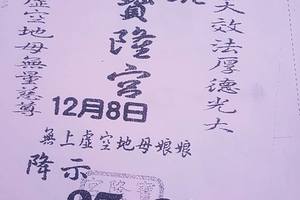 大效法厚德光大
寶隆宮
虛空地母無量慈尊
12月8日
無上虛空地母娘娘
降示